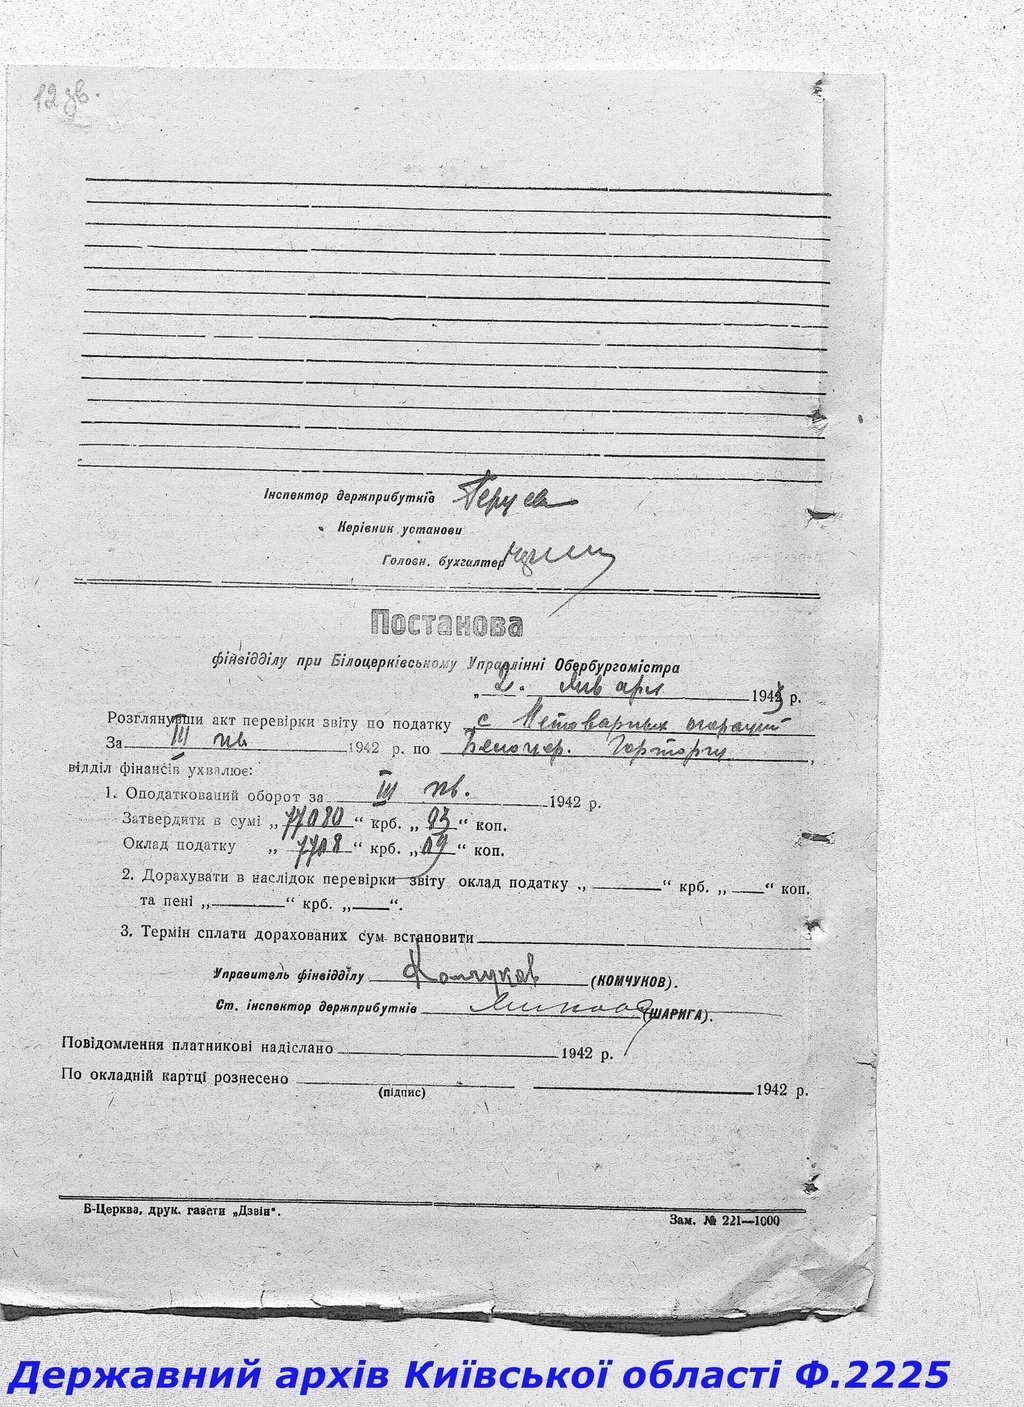 12 зв.
Інспектор держприбутків
Керівник установи
Головн. бухгалтер
Постанова
фінвідділу при Білоцерківському Управлінні Обербургомістра
„ 2. января 1943 р.
Розглянувши акт перевірки звіту по податку с Нетоварных операций
За III кв 1942 р. по Белоцер. Горторгу,
відділ фінансів ухвалює:
1. Оподаткований оборот за III кв. 1942 р.
Затвердити в сумі „77080“ крб. „93“ коп.
Оклад податку „ 7708 “ крб. „09“ коп.
2. Дорахувати в наслідок перевірки звіту оклад податку „ “ крб. „ “ коп.
та пені „ “ крб. „ “.
3. Термін сплати дорахованих сум встановити
Управитель фінвідділу Комчуков (КОМЧУКОВ).
Ст. інспектор держприбутків (ШАРИГА).
Повідомлення платникові надіслано 1942 р.
По окладній картці рознесено 1942 р.
(підпис)
Б-Церква, друк. газети „Дзвін“.
Зам. № 221—1000
Державний архів Київської області Ф.2225